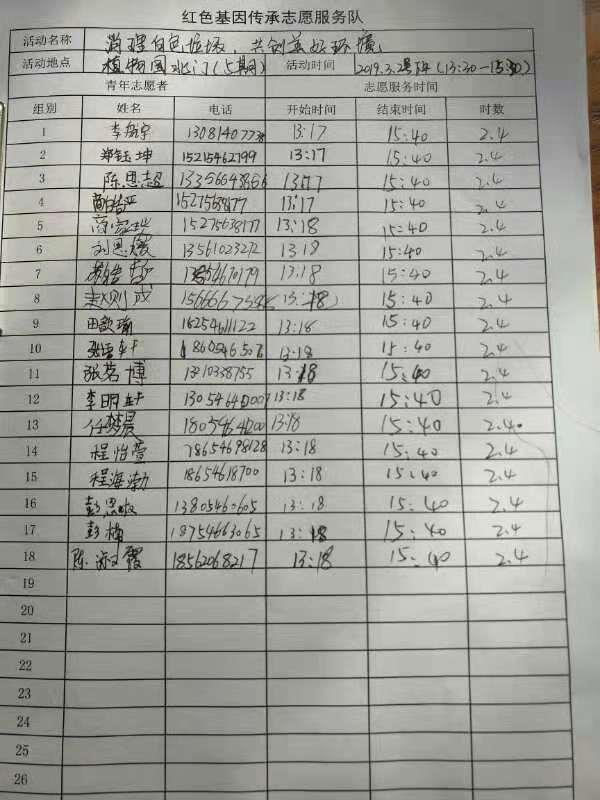 红色基因传承志愿服务队
活动名称 清理白色垃圾，共创美好环境
活动地点 植物园北门(七期) 活动时间 2019.3. (13:30-15:30)
青年志愿者 志愿服务时间
组别 姓名 电话 开始时间 结束时间 时数
1 13:17 15:40 2.4
2 郑钰坤 15215462799 13:17 15:40 2.4
3 陈思超 13:17 15:40 2.4
4 13:17 15:40 2.4
5 15275638177 13:18 15:40 2.4
6 刘思媛 13561023272 13:18 15:40 2.4
7 13:18 15:40 2.4
8 赵则成 13:18 15:40 2.4
9 田歆瑜 18254611122 13:18 15:40 2.4
10 13:18 15:40 2.4
11 张茗博 13:18 15:40 2.4
12 李明轩 13:18 15:40 2.4
13 任梦晨 13:18 15:40 2.40
14 程怡萱 18654698128 13:18 15:40 2.4
15 程海渤 18654618700 13:18 15:40 2.4
16 13805460605 13:18 15:40 2.4
17 彭楠 18754663065 13:18 15:40 2.4
18 陈淑霞 18562068217 13:18 15:40 2.4
19
20
21
22
23
24
25
26